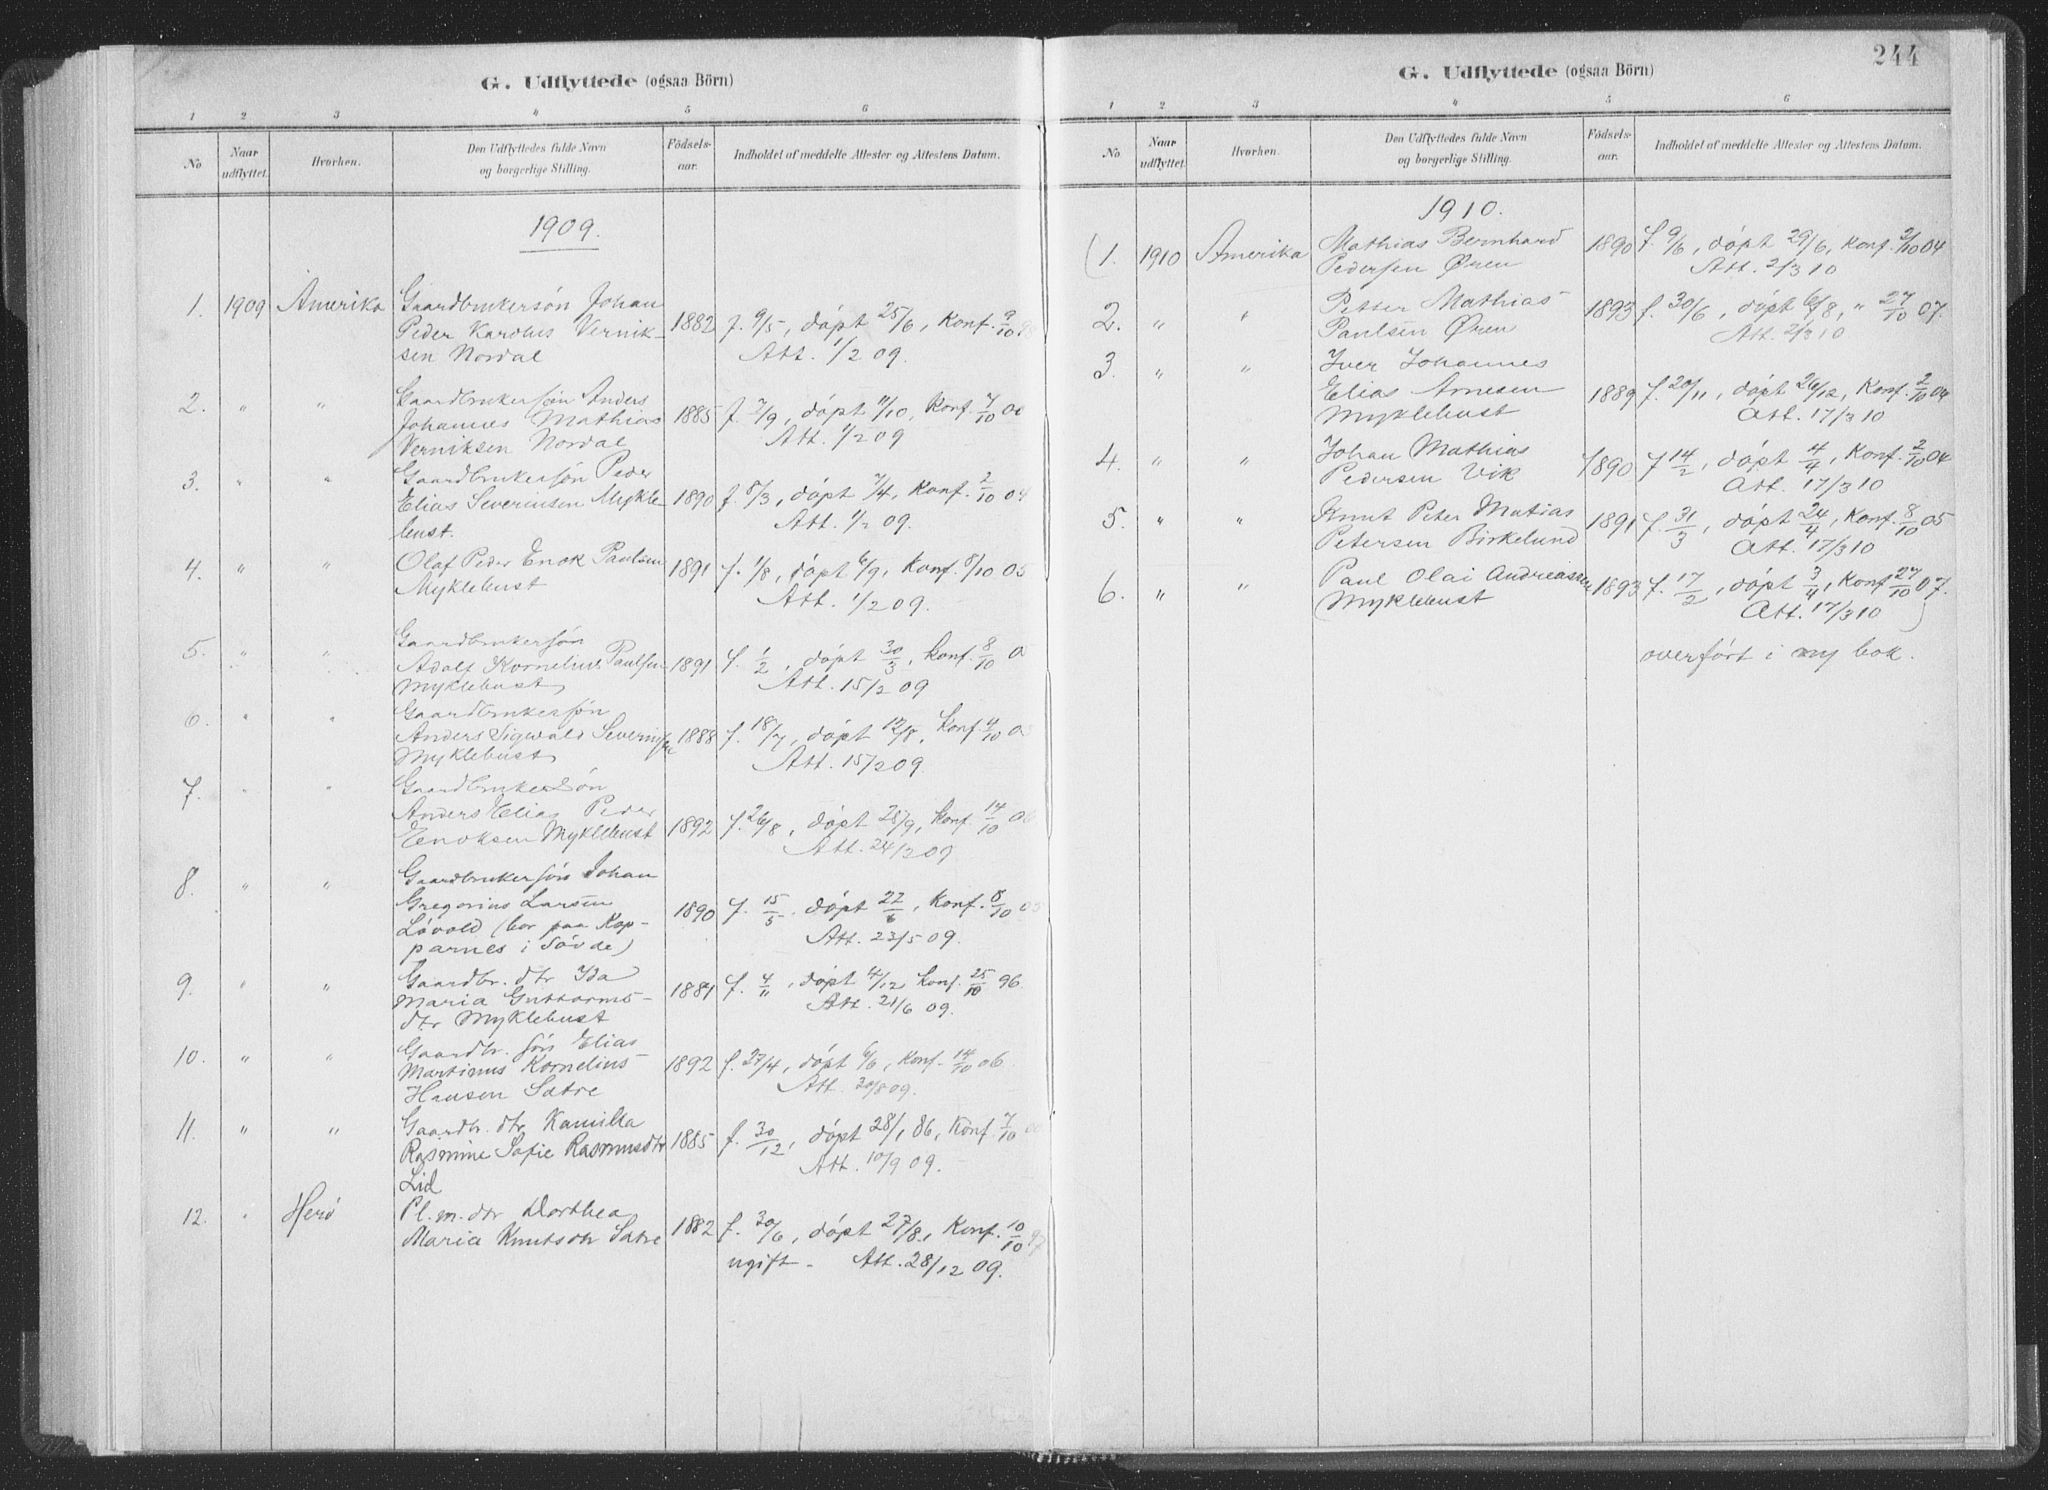 G. Udflyttede (ogsaa Börn)
1 2 3 4 5 6
No Naar udflyttet. Hvorhen. Den Udflyttedes fulde Navn og borgerlige Stilling. Födsels-aar. Indholdet af meddelte Attester og Attestens Datum.
1909.
1. 1909 Amerika Gaardbrukersøn Johan
Peder Karolus Vernik- 1882 f. 9/5, døpt 25/6, Konf. 9/10
sen Nordal Att. 1/2 09.
2. " " Gaardbrukersøn Anders
Johannes Mathias 1885 f. 7/9, døpt 11/10, Konf. 7/10 00
Verniksen Nordal Att. 1/2 09
3. " " Gaardbrukersøn Peder
Elias Severinsen Mykle 1890 f. 8/3, døpt 7/4, Konf. 2/10 04
bust. Att. 1/2 09.
4. " " Olaf Peder Enok Paulsen 1891 f. 1/8, døpt 6/9, Konf. 8/10 05
Myklebust Att. 1/2 09.
5. " " Gaardbrukersøn
Adolf Kornelius Paulsen 1891 f. 1/2, døpt 30/3, Konf. 8/10 0
Myklebust Att. 15/2 09
6. " " Gaardbrukersøn
Anders Sigwald Severinsen 1888 f. 18/7, døpt 12/8, Konf. 4/10 0
Myklebust Att. 15/2 09.
7. " " Gaardbrukersøn
Anders Elias Peder
Enoksen Myklebust 1892 f. 26/8, døpt 28/9, Konf. 14/10 06
Att. 24/2 09
8. " " Gaardbrukersøn Johan
Gregorius Larsen 1890 f. 15/5, døpt 22/6, Konf. 8/10 05
Løvold (bor paa Kop-
parnes i Søvde) Att. 23/5 09.
9. " " Gaardbr. dtr Ida
Maria Guttorms- 1881 f. 4/11, døpt 4/12 Konf. 25/10 96.
dtr Myklebust Att. 21/6 09.
10. " " Gaardbr. søn Elias
Martinus Kornelius 1892 f. 27/4, døpt 6/6, Konf. 14/10 06.
Hansen Sætre Att. 30/8 09.
11. " " Gaardbr. dtr Kamilla
Rasmine Sofie Rasmusdtr 1885 f. 30/12, døpt 28/1 86, Konf. 7/10 00
Lid Att. 10/9 09.
12. " Herø Pl.m. dtr Dorthea
Maria Knutsdtr Sætre 1882 f. 30/6, døpt 27/8, Konf. 10/10 97
ugift - Att. 28/12 09.
244
G. Udflyttede (ogsaa Börn)
1 2 3 4 5 6
No. Naar udflyttet. Hvorhen. Den Udflyttedes fulde Navn og borgerlige Stilling. Födsels-aar. Indholdet af meddelte Attester og Attestens Datum.
1910.
(1. 1910 Amerika Mathias Bernhard 1890 f. 9/6, døpt 29/6, Konf. 2/10 04
Pedersen Øren Att. 2/3 10
2. " " Petter Mathias 1893 f. 30/6, døpt 6/8, " 27/10 07.
Paulsen Øren Att. 2/3 10
3. " " Iver Johannes
Elias Arnesen 1889 f. 20/11, døpt 26/12, Konf. 2/10 04
Myklebust Att. 17/3 10
4. " " Johan Mathias
Pedersen Vik 1890 f 14/2, døpt 4/4, Konf. 2/10 04
Att. 17/3 10
5. " " Knut Peter Matias 1891 f. 31/3, døpt 24/4, Konf. 8/10 05
Petersen Birkelund Att. 17/3 10
6. " " Paul Olai Andreassen 1893 f. 17/2, døpt 3/4, Konf 27/10 07.
Myklebust Att. 17/3 10)
overført i ny bok.